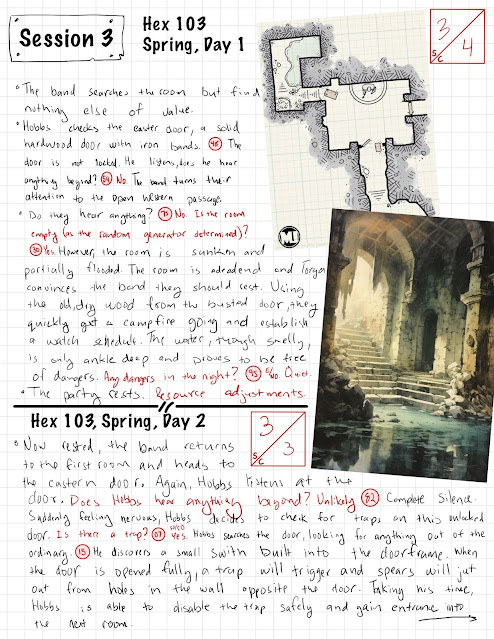 Session 3
Hex 103
Spring, Day 1
3
4
S
C
• The band searches the room but find
nothing else of value.
• Hobbs checks the easter door, a solid
hardwood door with iron bands. 48 The
door is not locked. He listens, does he hear
anything beyond? 54 No. The band turns their
attention to the open western passage.
• Do they hear anything? No. Is the room
empty (as the random generator determined)?
30 Yes. However, the room is sunken and
partially flooded. The room is a deadend and Torga
convinces the band they should rest. Using
the old, dry wood from the busted door, they
quickly get a campfire going and establish
a watch schedule. The water, though smelly,
is only ankle deep and proves to be free
of dangers. Any dangers in the night? 95 E/No. Quiet.
• The party rests. Resource adjustments.
Hex 103, Spring, Day 2
3
3
S
C
• Now rested, the band returns
to the first room and heads to
the eastern door. Again, Hobbs listens at the
door. Does Hobbs hear anything beyond? Unlikely 82 Complete Silence.
Suddenly feeling nervous, Hobbs decides to check for traps on this unlocked
door. Is there a trap? 07 Yes. Hobbs searches the door, looking for anything out of the
ordinary. 15 He discovers a small swith built into the doorframe. When
the door is opened fully, a trap will trigger and spears will jut
out from holes in the wall opposite the door. Taking his time,
Hobbs is able to disable the trap safely and gain entrance into
the next room.